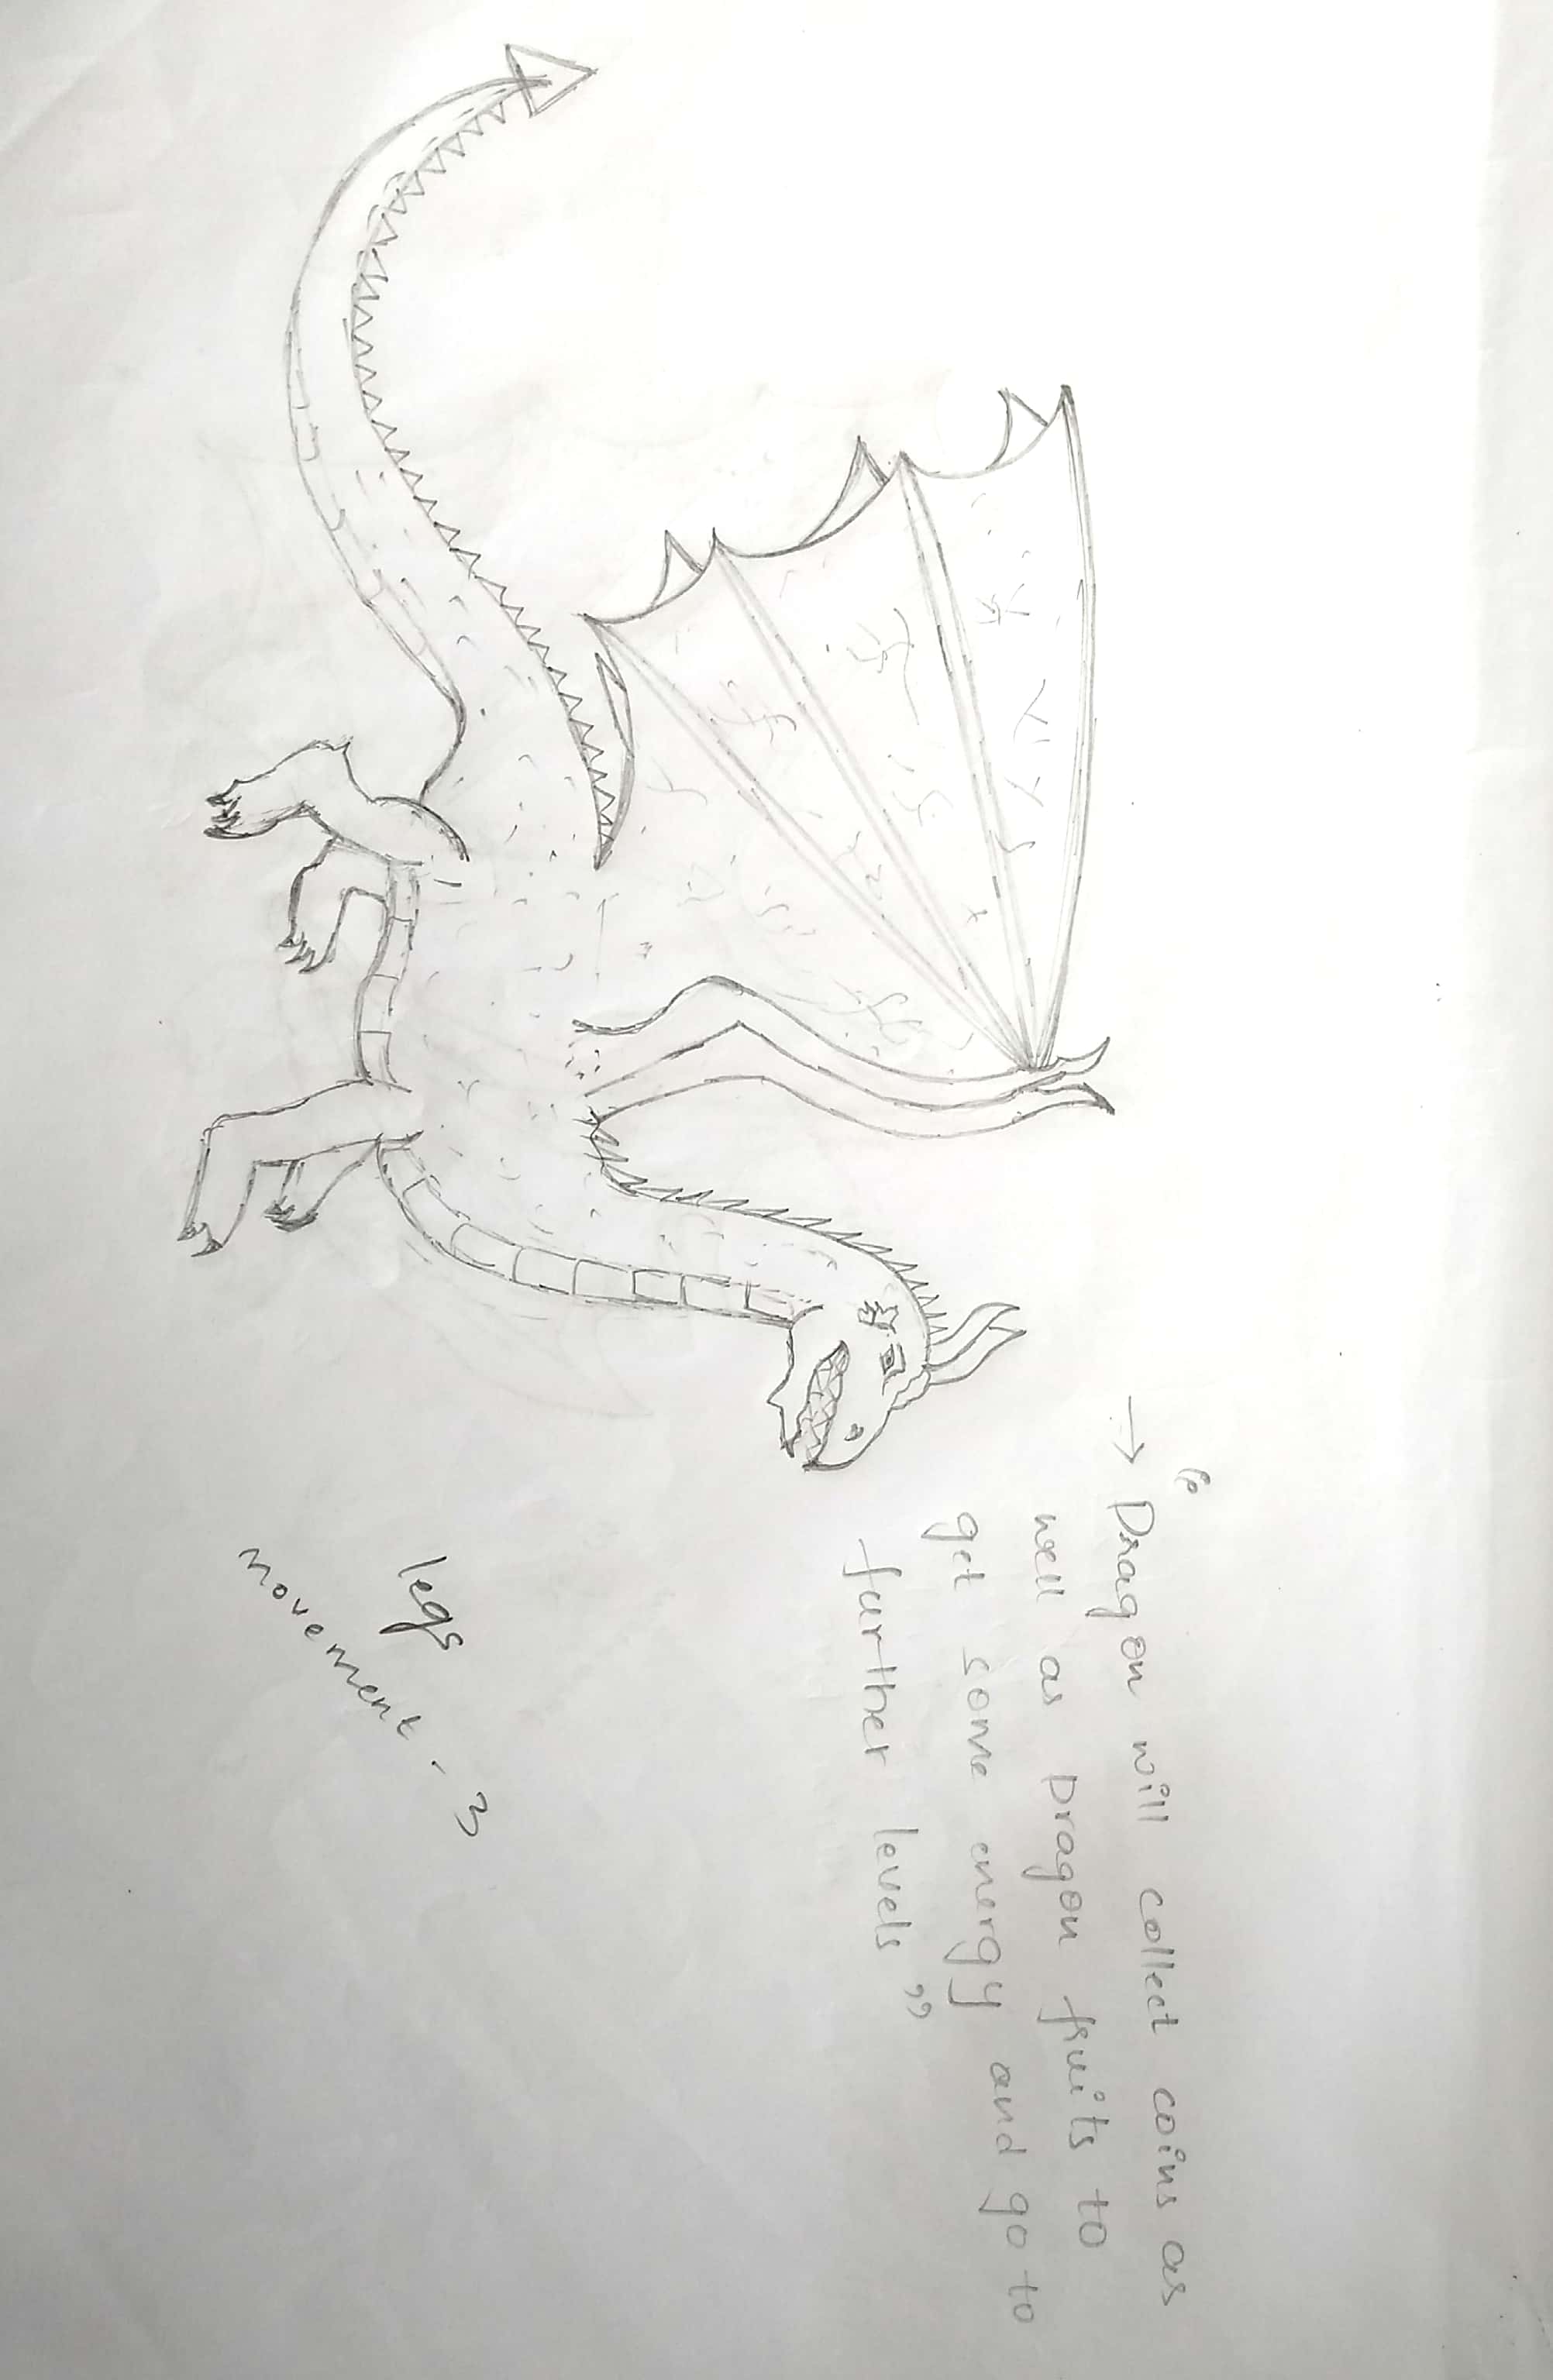 “
→ Dragon will collect coins as
well as Dragon fruits to
get some energy and go to
further levels ”
legs
movement - 3